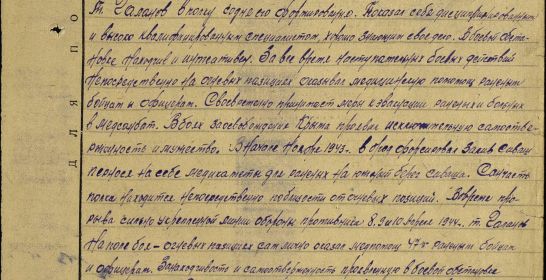 т. Галанов в полку со дня его формирования. Показал себя дисциплинированным
и высоко квалифицированным специалистом, хорошо знающим своё дело. В боевой обста-
новке находчив и мужественен. За все время наступательных боевых действий
непосредственно на огневых позициях оказывал медицинскую помощь раненым
бойцам и офицерам. Своевременно принимает меры к эвакуации раненых и больных
в медсанбат. В боях за освобождение Крыма проявил исключительную самоотвер-
женность и мужество. В начале ноября 1943 г. в брод форсировал залив Сиваш
перенося на себе медикаменты для раненых на южный берег Сиваша. Санчасть
полка находится непосредственно поблизости от огневых позиций. Во время про-
рыва сильно укрепленной линии обороны противника 8, 9 и 10 апреля 1944 г. т. Галанов
на поле боя - огневых позициях сам лично оказал медпомощь 47 раненым бойцам
и офицерам. За находчивость и самоотверженность проявленную в боевой обстановке
ДЛЯ ПО